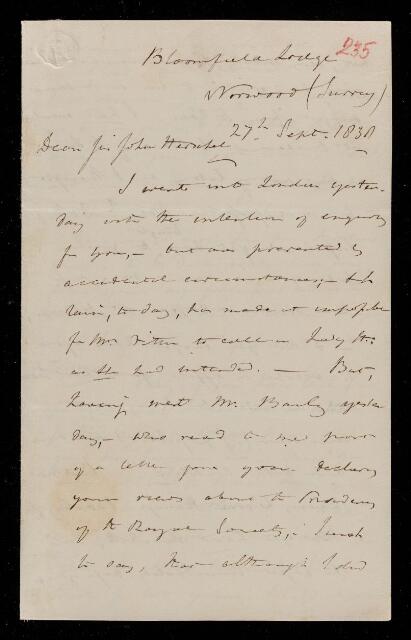 235
Bloomfield Lodge
Norwood (Surrey)
27th Sept. 1830
Dear Sir John Herschel
I went into London yester-
day with the intention of enquiring
for you, – but was prevented by
accidental circumstances, – &
rain, to day, has made it impossible
for Mrs to call on Lady H:
as she had intended. — But,
having met Mr. Baily yester
day, – who read to me part
of a letter from you declaring
your views about the Presidency
of the Royal Society, I wish
to say, that although I did